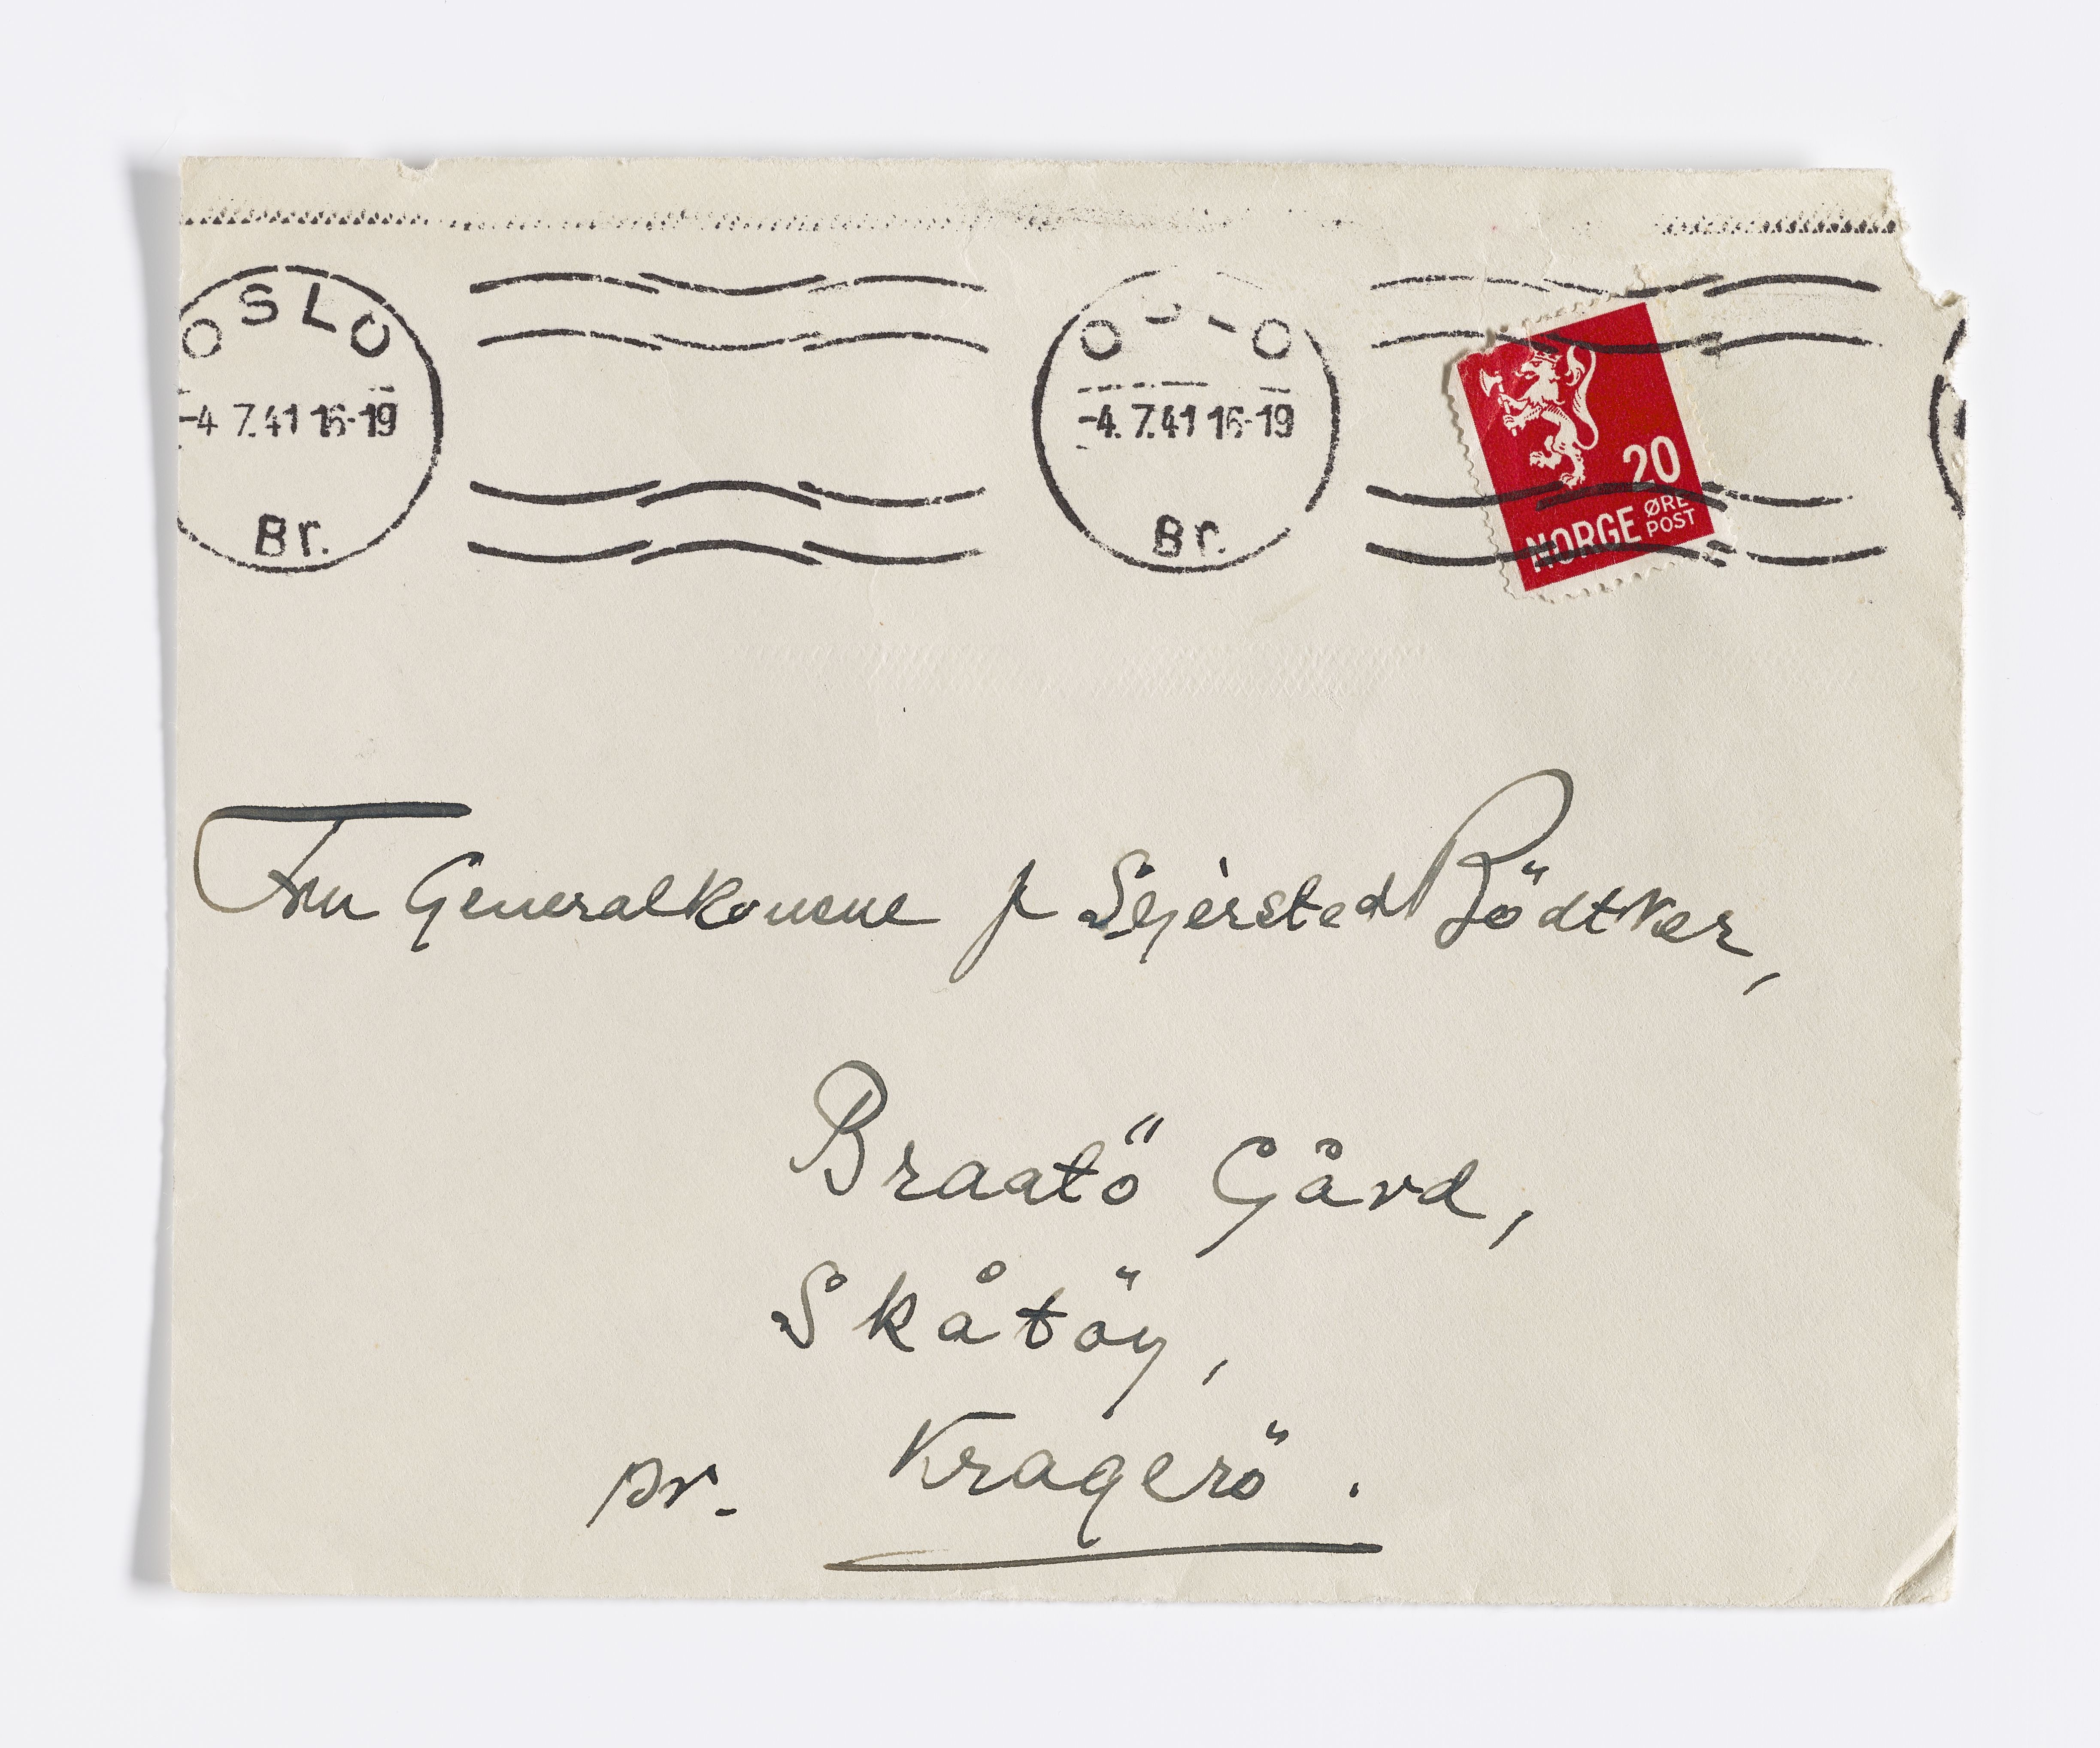 OSLO
-4 7.41 16-19
Br.
OSLO
-4. 7.41 16-19
Br.
20
ØRE
NORGE POST
Fru Generalkonsul
Sejersted Bödtker,
Braatö Gård,
Skåtöy,
pr. Kragerö.